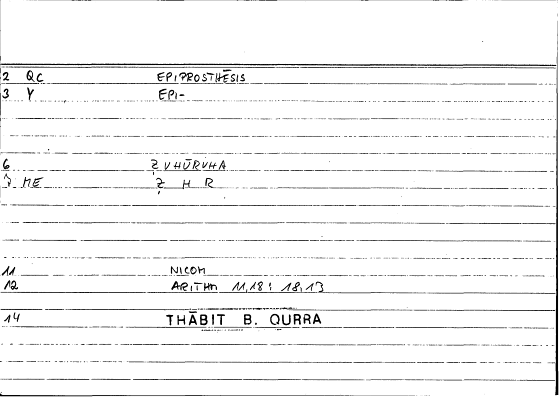 2 QC EPIPROSTHĒSIS
3 Y EPI-
6 ẒUHŪRUHA
7 ME Ẓ H R
11 NICOM
12 ARITHM 11,18; 18,13
14 THĀBIT B. QURRA